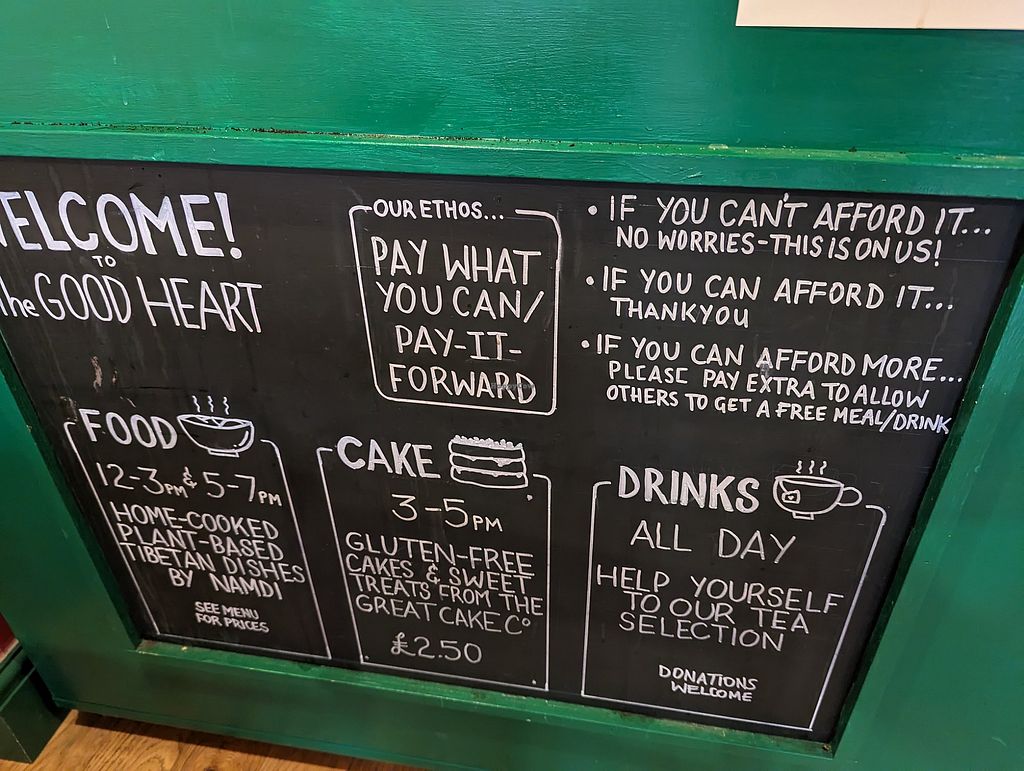 WELCOME!
TO
The GOOD HEART
OUR ETHOS...
PAY WHAT
YOU CAN/
PAY-IT-
FORWARD
• IF YOU CAN'T AFFORD IT...
NO WORRIES - THIS IS ON US!
• IF YOU CAN AFFORD IT...
THANKYOU
• IF YOU CAN AFFORD MORE...
PLEASE PAY EXTRA TO ALLOW
OTHERS TO GET A FREE MEAL/DRINK
FOOD
12-3PM & 5-7PM
HOME-COOKED
PLANT-BASED
TIBETAN DISHES
BY NAMDI
SEE MENU
FOR PRICES
CAKE
3-5PM
GLUTEN-FREE
CAKES & SWEET
TREATS FROM THE
GREAT CAKE Co
£2.50
DRINKS
ALL DAY
HELP YOURSELF
TO OUR TEA
SELECTION
DONATIONS
WELCOME